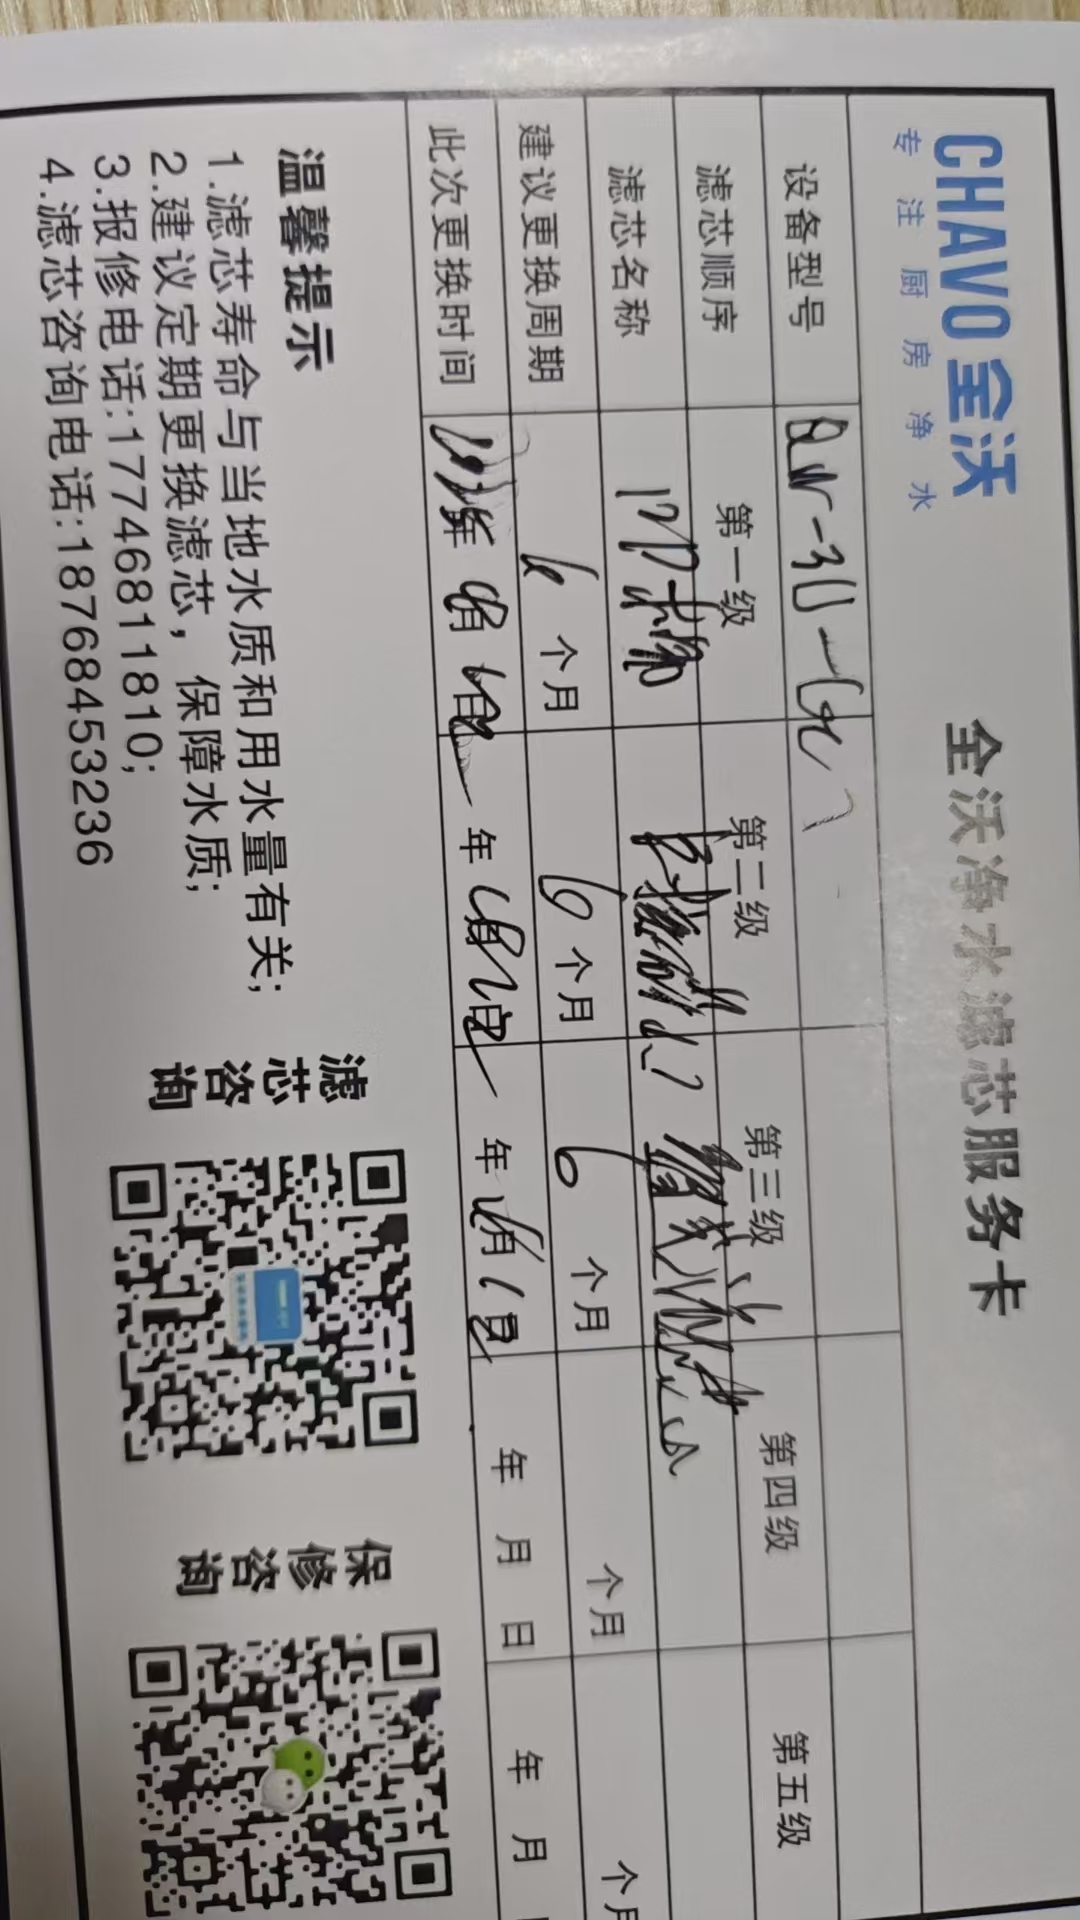 CHAVO全沃
专注厨房净水
全沃净水滤芯服务卡
设备型号
滤芯顺序 第一级 第二级 第三级 第四级 第五级
滤芯名称
建议更换周期 6 个月 6 个月 6 个月 个月 个月
此次更换时间 年 月 日 年 月 日 年 月 日 年 月 日 年 月
温馨提示
1.滤芯寿命与当地水质和用水量有关;
2.建议定期更换滤芯，保障水质;
3.报修电话:17746811810;
4.滤芯咨询电话:18768453236
滤芯咨询
保修咨询